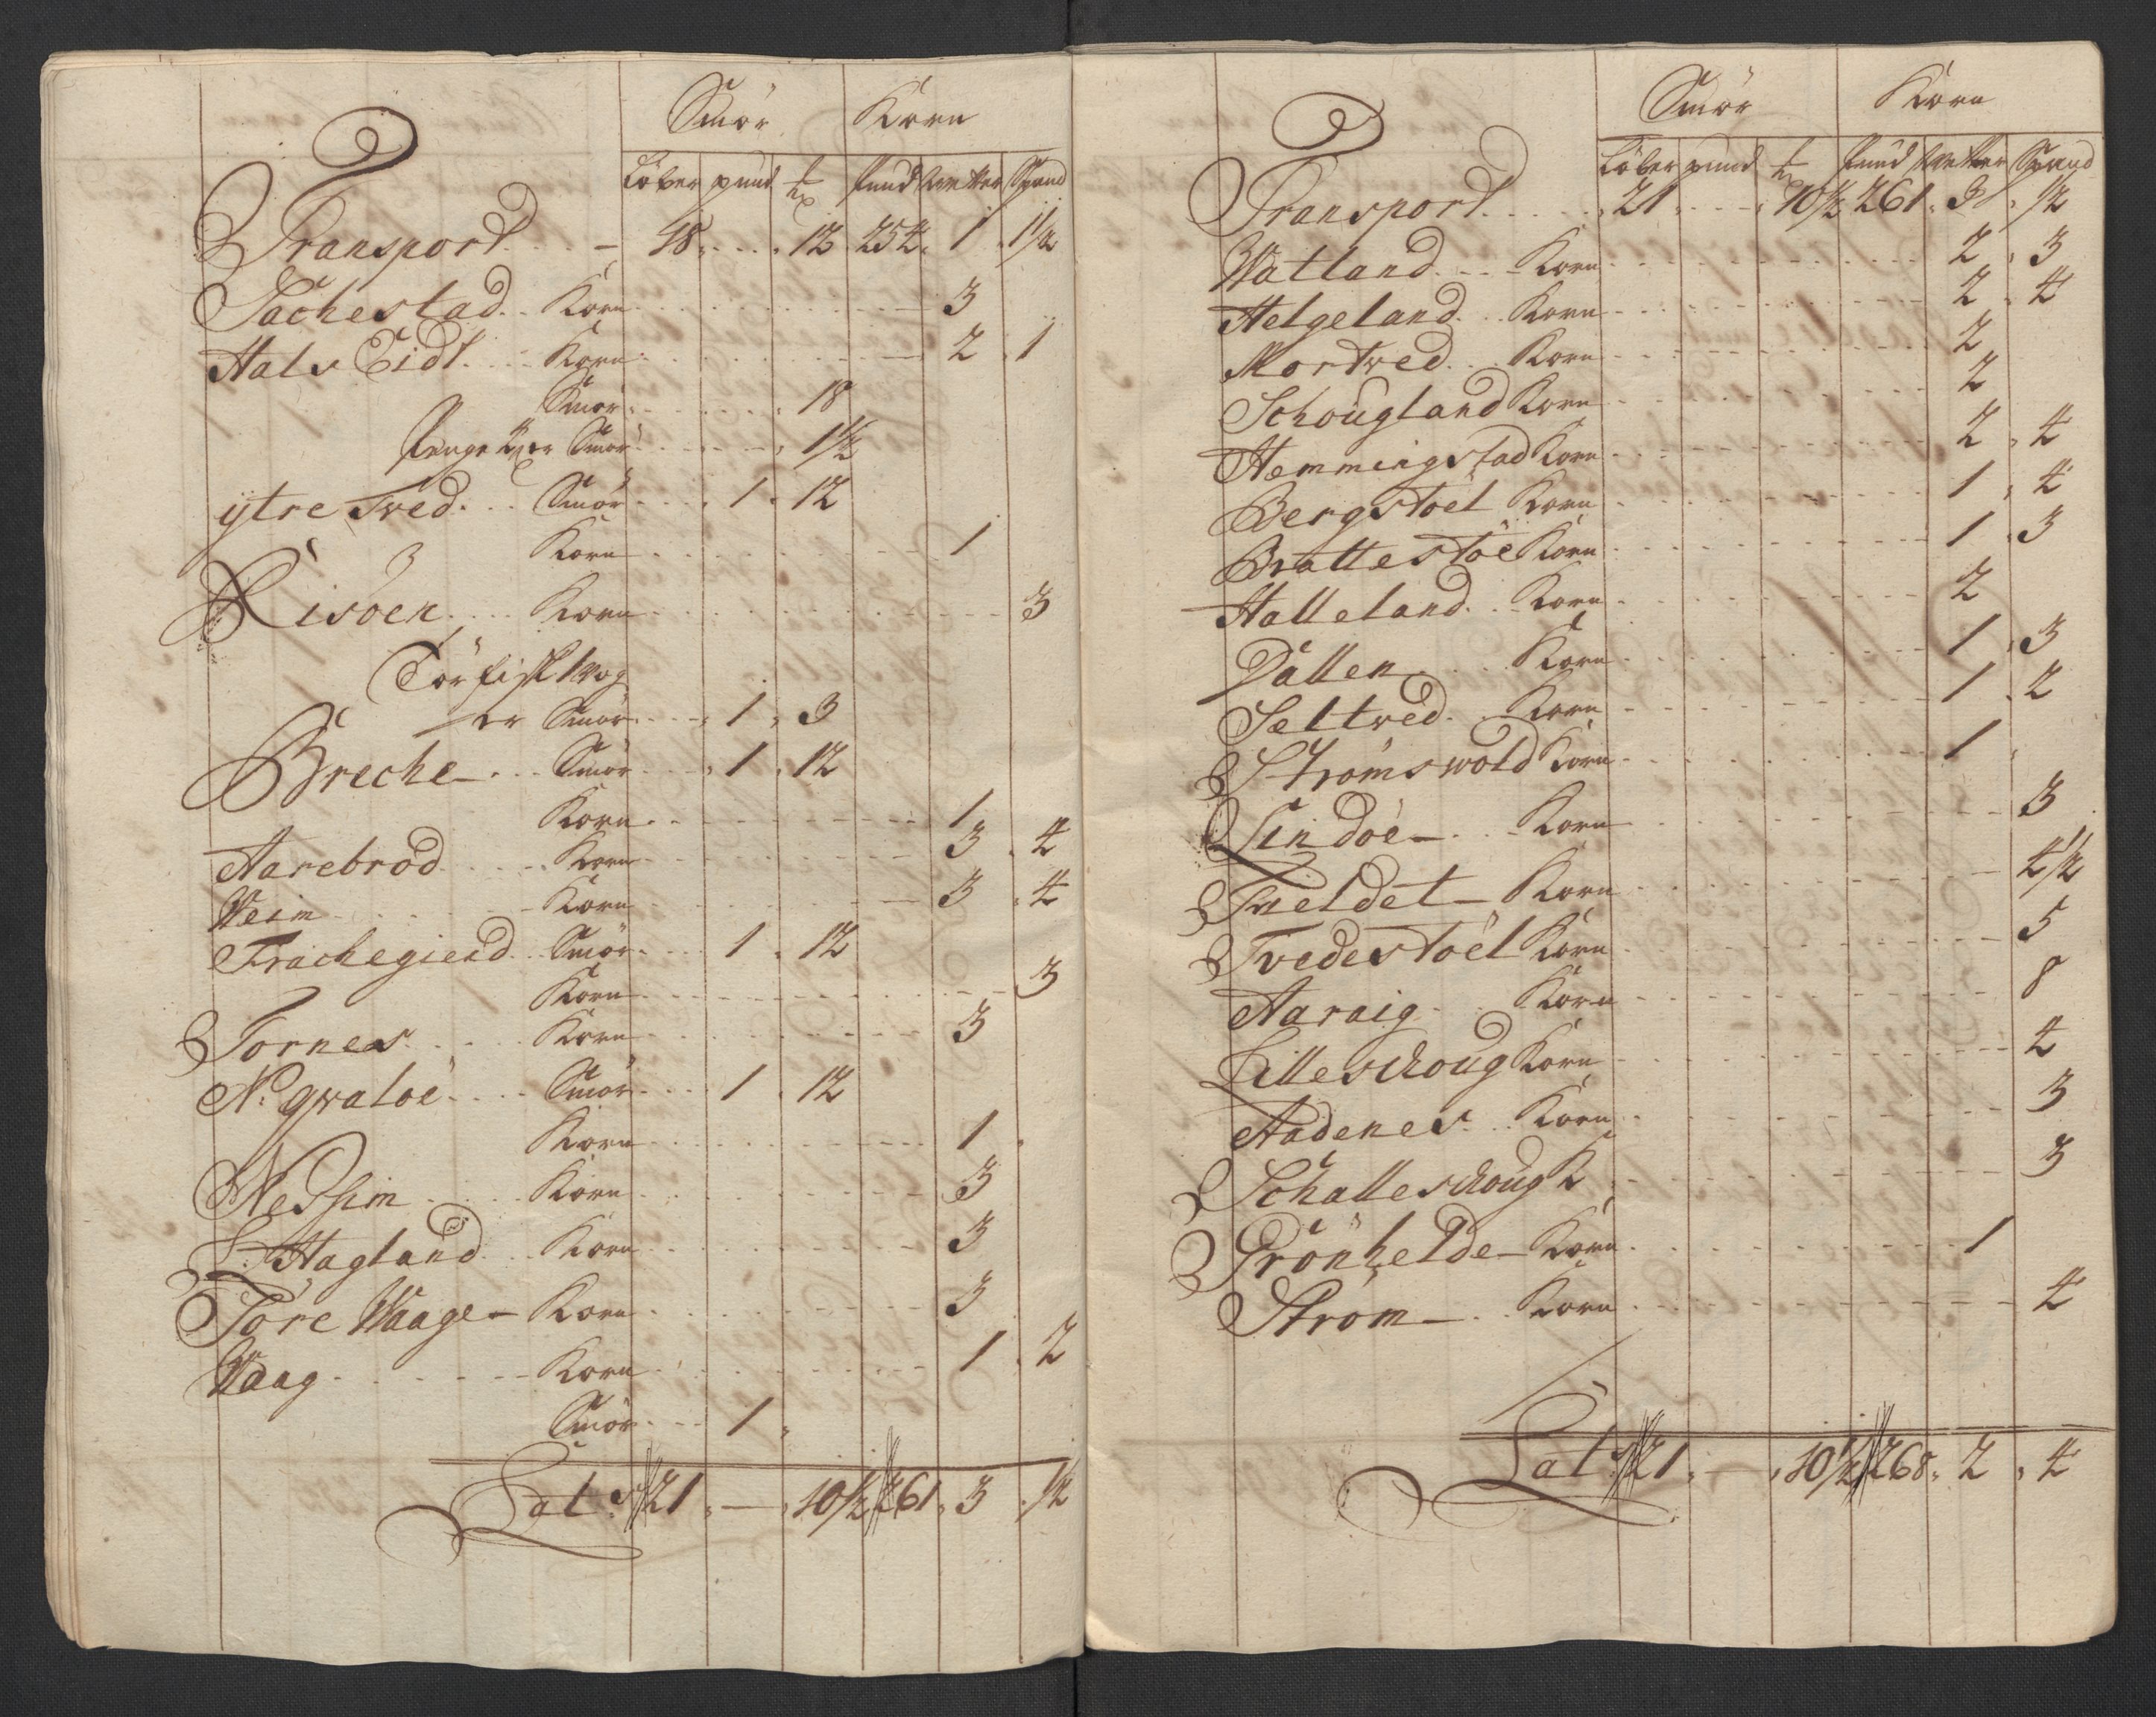 Smör Korn
Løber pund ℔ pund wetter Spand
Transport 18 12 254 1 1½
Sachestad Korn 3
Hals Eidt Korn 2 1
Smör 18
Penge er Smör 1½
ytre Tved Smör 1 12
Korn 1
Risøen Korn 3
Törfisk 1 Wog
er Smör 1 3
Breche Smör 1 12
Korn 1
Aarebrod Korn 3 4
Weim Korn 3 4
Frachegierd Smör 1 12
Korn 3
Tornes Korn 3
N. qvaløe Smör 1 12
Korn 1
Nedhim Korn 3
L. Hagland Korn 3
Töre Waage Korn 3
Waag Korn 1 2
Smör 1
Lat. 21 — 10½ 261 3 ½
Smör Korn
Løber pund ℔ pund wetter Spand
Transport 21 10½ 261 3 ½
Watland Korn 2 3
Helgeland Korn 2 4
Mortved Korn 2
Schougland Korn 2
Hemmingstad Korn 2 4
Bergstøel Korn 1 4
Brattestøe Korn 1 3
Halleland Korn 2
Dallen Korn 1 3
Seltved Korn 1 2
Strømswold Korn 1
Lindøe Korn 3
Tveldet Korn 4½
Tvedestøel Korn 5
Aaraig Korn 8
Lilleschoug Korn 4
Aadenes Korn 3
Schalleschoug K 3
Grönhelde Korn 1
Strøm Korn 4
Lat. 21 — 10½ 268 2 4